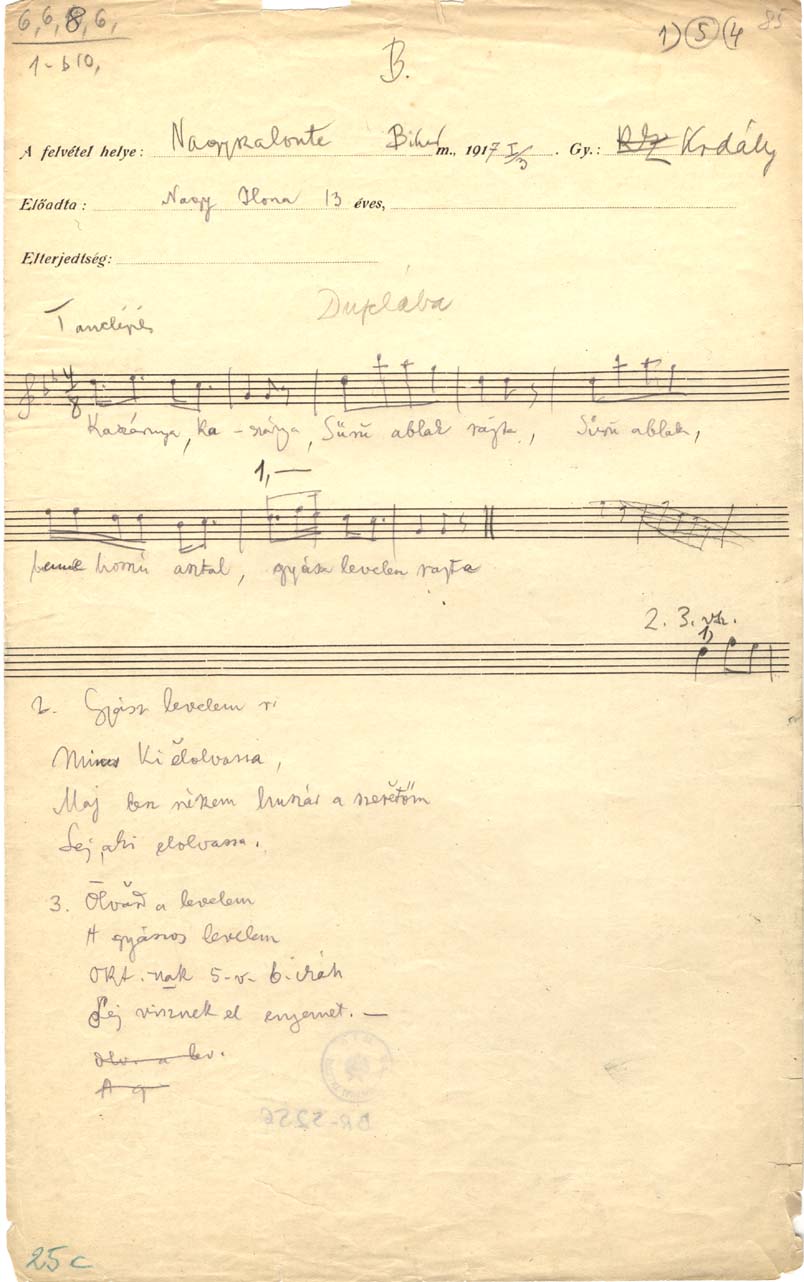 6, 6, 8, 6,
1 - b10,
B.
1) 5 (4
85
A felvétel helye: Nagyszalonta Bihar m., 1917 I/3. Gy.: Kodály
Előadta: Nagy Ilona 13 éves,
Elterjedtség:
Tánclépés
Duplába
4/8
Kaszárnya, ka-szárnya, Sűrű ablak rajta, Sűrű ablak,
1, —
benne hosszú asztal, gyász levelem rajta
2. 3. vsz.
1)
2. Gyász levelem r.
Nincs Ki ĕlolvassa,
Maj lesz nékem huszár a szeretőm
Sej, aki elolvassa.
3. Olvasd a levelem
A gyászos levelem
Okt.-nak 5-v. 6-ikán
Sej visznek el engemet. —
Olv. a lev.
A g
BR-5256
25 c